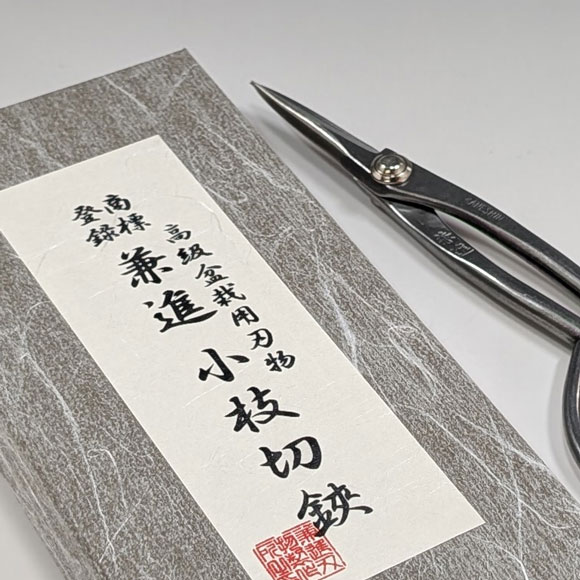 高級盆栽用刃物
商標
登録
兼進 小枝切鋏
KANESHIN
兼進